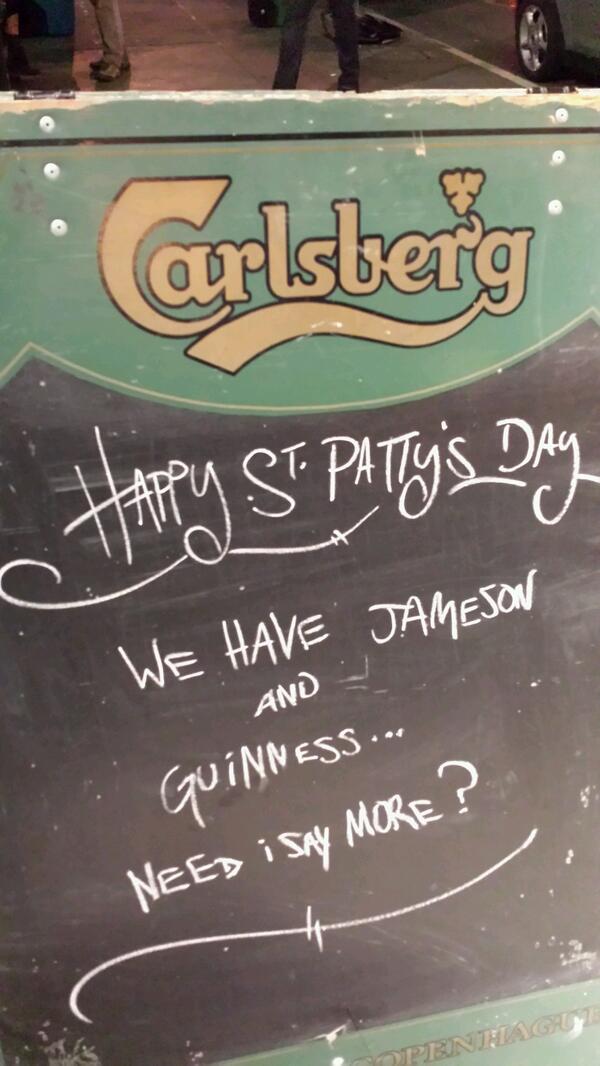 Carlsberg
HAPPY ST. PATTY'S DAY
WE HAVE JAMESON
AND
GUINNESS...
NEED i SAY MORE?
COPENHAGUE